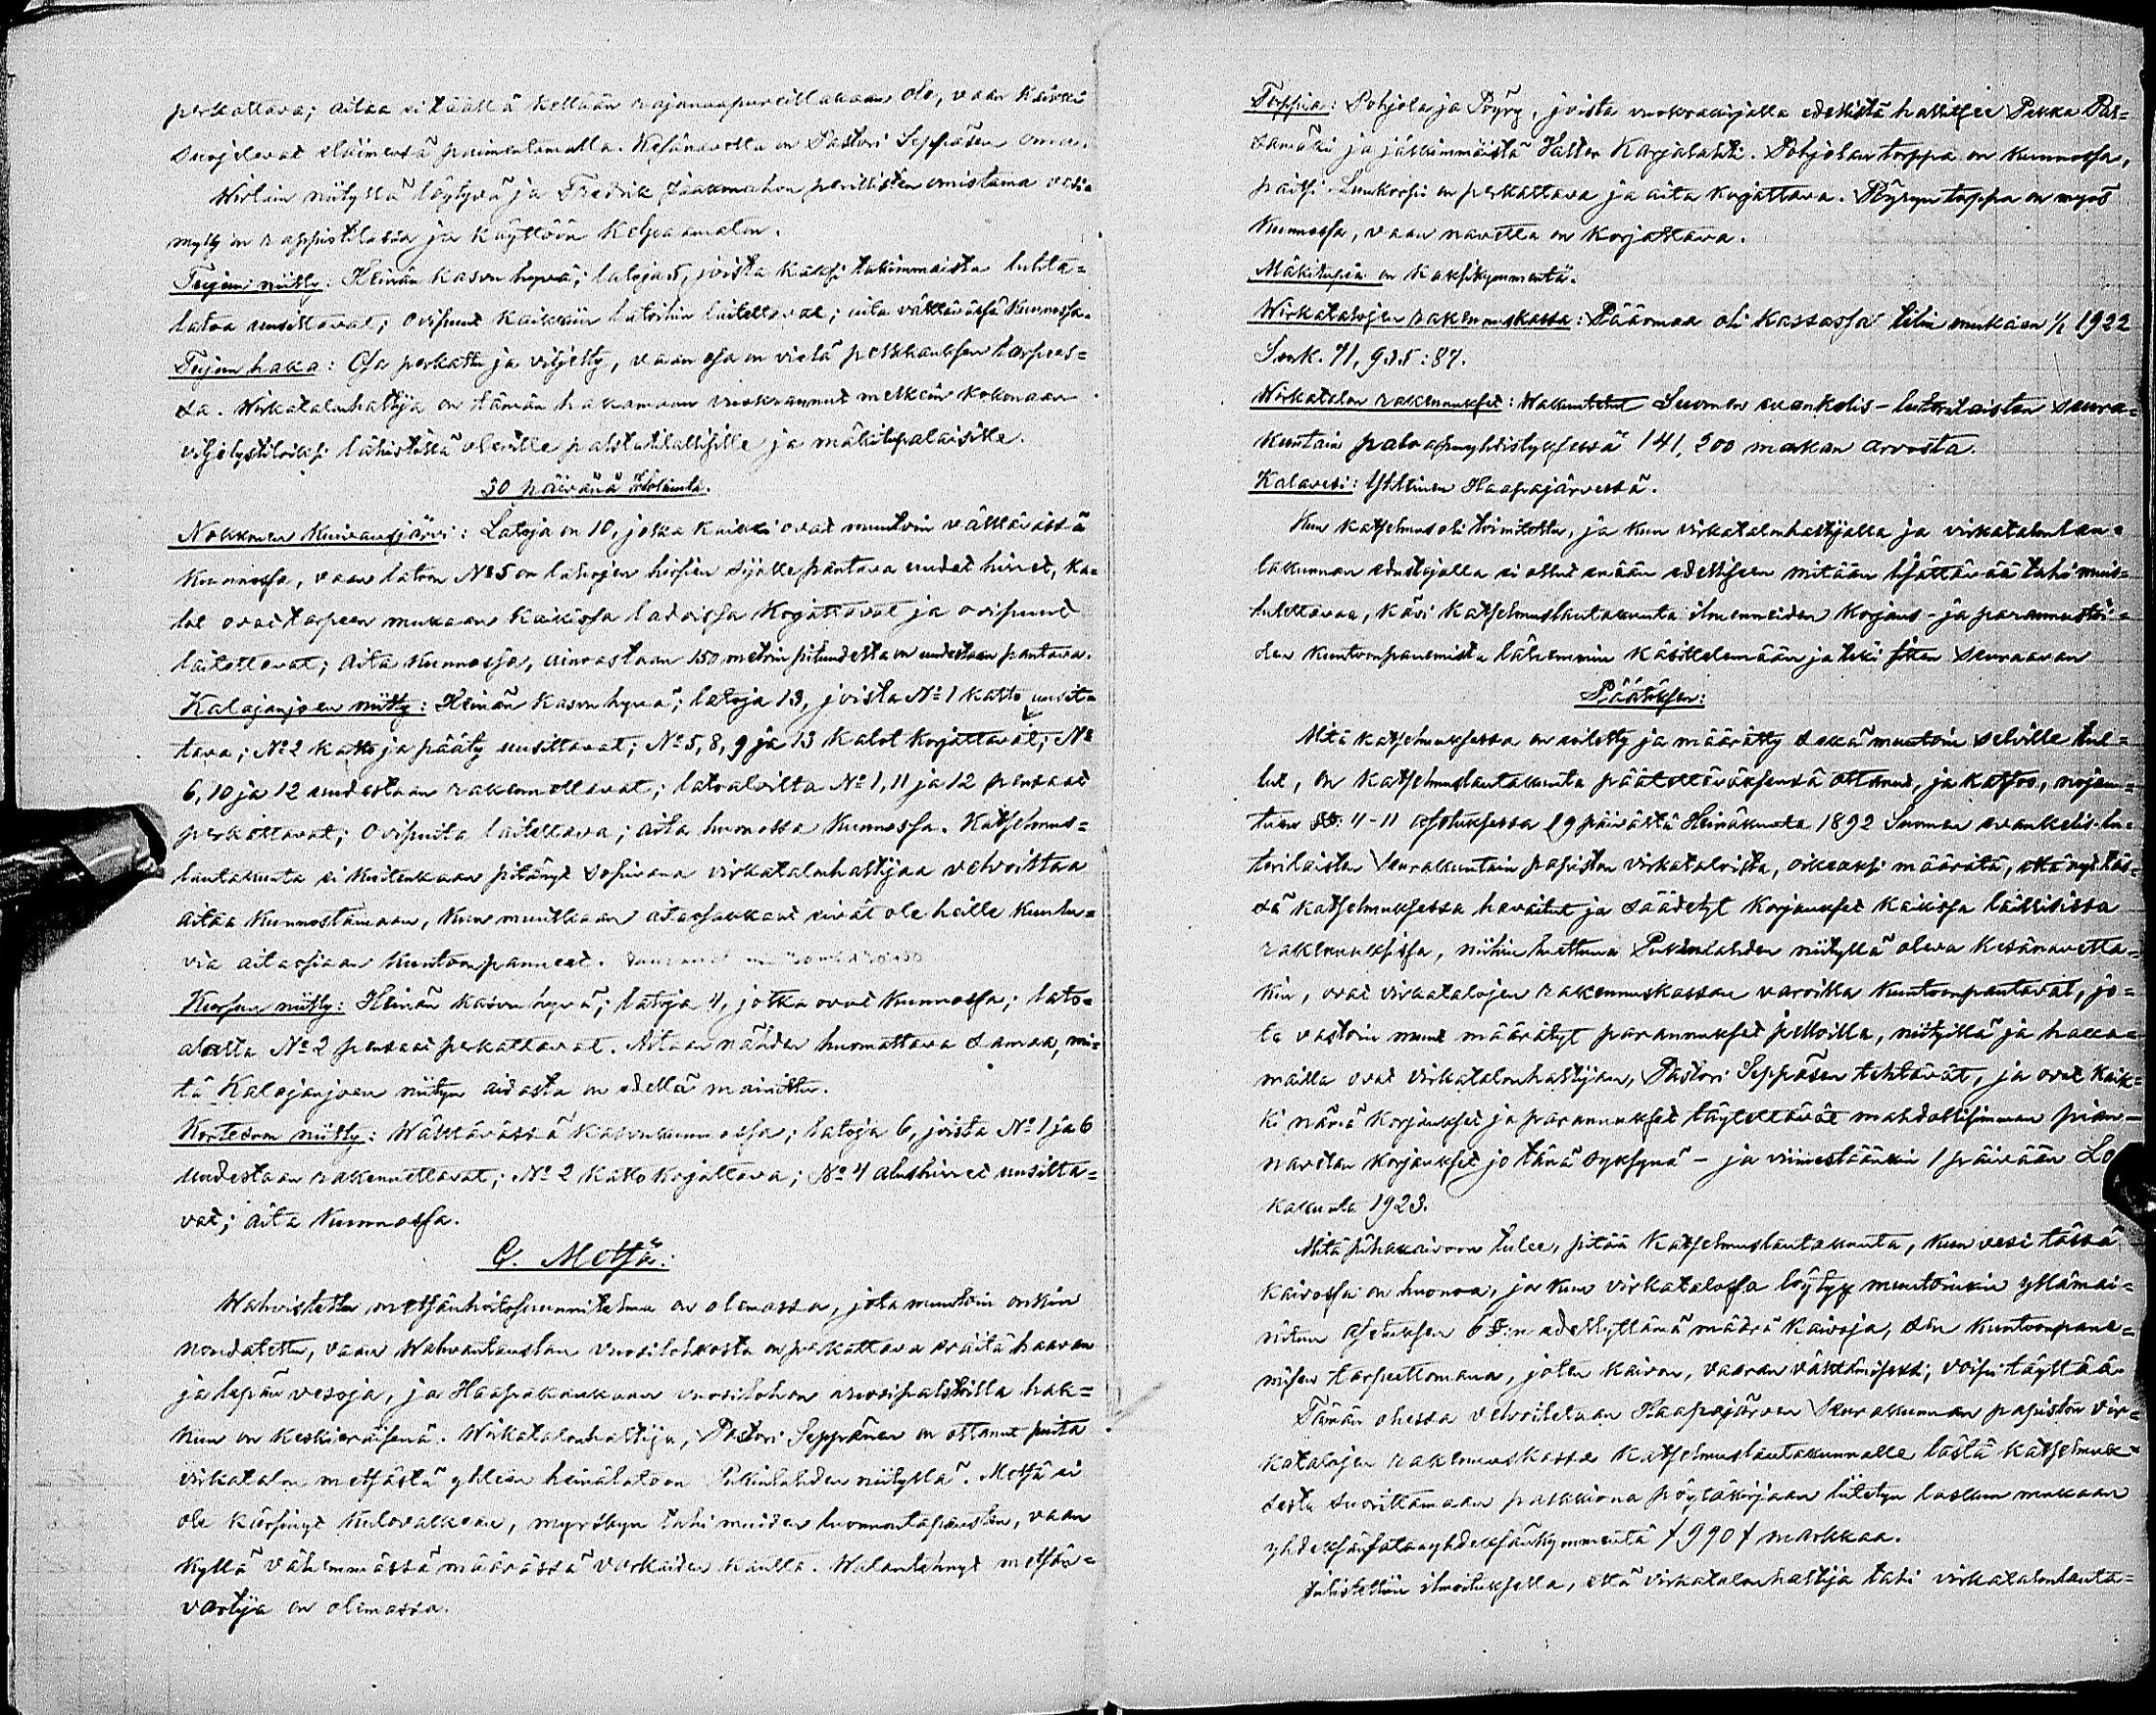 perkattava; aitaa ei täällä kellään rajanaapureillakaan ole, vaan kaikki
suojelevat eläimensä paimentamalla. Kesänavetta on Pastori Seppäsen oma.
Wirlain niityllä löytyvä ja Fredrik Jaakonahon perillisten omistama vesi-
mylly on rappiotilassa ja käyttöön kelpaamaton.
Teijun niitty: Heinän kasvu hyvä; latoja 5, joista kaksi takimmaista luhta-
latoa uusittavat; ovipuut kaikkiin latoihin laitettavat; aita välttävässä kunnossa.
Teijun haka: Osa perkattu ja viljelty, vaan osa on vielä perkkauksen tarpees-
sa. Wirkatalonhaltija on tämän hakamaan vuokrannut melkein kokonaan
viljelystiloiksi lähistöllä oleville palstatilallisille ja mäkitupalaisille.
30 päivänä
Nokkouen Kuivausjärvi: Latoja on 10, jotka kaikki ovat muutoin välttävässä
kunnossa, vaan latoon № 5 on lahojen hirsien sijalle pantava uudet hirret, ka-
tot ovat tarpeen mukaan kaikissa ladoissa korjattavat ja ovipuut
laitettavat; aita kunnossa, ainoastaan 150 metrin pituudelta on uudestaan pantava.
Kalajanjoen niitty: Heinän kasvu hyvä; latoja 13, joista № 1 katto uusit-
tava; № 2 katto ja pääty uusittavat; № 5, 8, 9 ja 13 katot korjattavat; №
6, 10 ja 12 uudestaan rakennettavat; latoaloilta № 1, 11 ja 12 pensaat
perkattavat; ovipuita laitettava; aita huonossa kunnossa. Katselmus-
lautakunta ei kuitenkaan pitänyt sopivana virkatalonhaltijaa velvoittaa
aitaa kunnostamaan, kun muutkaan aitaosakkaat eivät ole heille kuulu-
via aitaosiaan kuntoon panneet.
Korpun niitty: Heinän kasvu hyvä; latoja 4, jotka ovat kunnossa; lato-
alalta № 2 pensaat perkattavat. Aitaan nähden huomattava samaa, mi-
tä Kalajanjoen niityn aidasta on edellä mainittu.
Kortesuon niitty: Wälttävässä kasvukunnossa; latoja 6, joista № 1 ja 6
uudestaan rakennettavat; № 2 katto korjattava; № 4 alushirret uusitta-
vat; aita kunnossa.
G. Metsä:
Wahvistettu metsänhoitosuunnitelma on olemassa, jota muutoin onkin
noudatettu, vaan Wahvantaustan vuosilohkosta on perkattava eräitä haavan
ja lepän vesoja, ja Haapakankaan vuosilohon vuosipalstoilla hak-
kuu on keskieräisenä. Wirkatalonhaltija, Pastori Seppänen on ottanut puita
virkatalon metsästä yhteen heinälatoon Pukinlahden niityllä. Metsä ei
ole kärsinyt kulovalkean, myrskyn tahi muiden luonnontapausten, vaan
kyllä vähemmässä määrässä varkaiden kautta. Walantehnyt metsän-
vartija on olemassa.
Torppia: Pohjola ja Pöyry, joista vuokrakirjalla edellistä hallitsee Pekka Pas-
samäki ja jälkimmäistä Valter Karjalahti. Pohjolan torppa on kunnossa,
paitsi Luukorpi on perkattava ja aita korjattava. Pöyryn torppa on myös
kunnossa, vaan navetta on korjattava.
Mäkitupia on kaksikymmentä.
Wirkatalojen rakennuskassa: Pääomaa oli kassassa tilin mukaan 1/1 1922
Smk. 71,935:87.
Wirkatalon rakennukset: Wakuutetut Suomen evankelis-luterilaisten seura-
kuntain paloapuyhdistyksessä 141,200 markan arvosta.
Kalavesi: Yhteinen Haapajärvessä.
Kun katselmus oli toimitettu, ja kun virkatalonhaltijalla ja virkatalonlau-
takunnan edustajalla ei ollut enään edelliseen mitään lisättävää tahi muis-
tutettavaa, kävi katselmuslautakunta ilmenneiden korjaus- ja parannustöi-
den kuntoonpanemista lähemmin käsittelemään ja teki sitten seuraavan
Päätöksen:
Mitä katselmuksessa on esitetty ja määrätty sekä muutoin selville tul-
lut, on katselmuslautakunta päätettäväksensä ottanut, ja katsoo, nojau-
tuen §§: 4-11 asetuksessa 19 päivästä Heinäkuuta 1892 Suomen evankelis-lu-
terilaisten Seurakuntain papiston virkataloista, oikeaksi määrätä, että nyt täs-
sä katselmuksessa havaitut ja säädetyt korjaukset kaikissa laillisissa
rakennuksissa, niihin luettuna Pukinlahden niityllä oleva kesänavetta-
kin, ovat virkatalojen rakennuskassan varoilla kuntoonpantavat, jo-
ta vastoin muut määrätyt parannukset pelloilla, niityillä ja haka-
mailla ovat virkatalonhaltijan, Pastori Seppäsen tehtävät, ja ovat kaik-
ki nämä korjaukset ja parannukset täytettävät mahdollisimman pian –
navetan korjaukset jo tänä syksynä – ja viimeistäänkin 1 päivään Lo-
kakuuta 1923.
Mitä pihakaivoon tulee, pitää katselmuslautakunta, kun vesi tässä
kaivossa on huonoa, ja kun virkatalossa löytyy muutoinkin yllämai-
nitun asetuksen 6 §:n edellyttämä määrä kaivoja, sen kuntoonpane-
misen tarpeettomana, joten kaivon, vaaran välttämiseksi, voipi täyttää.
Tämän ohessa velvoitetaan Haapajärven Seurakunnan papiston vir-
katalojen rakennuskassa katselmuslautakunnalle tästä katselmuk-
sesta suorittamaan palkkiona pöytäkirjaan liitetyn laskun mukaan
yhdeksänsataayhdeksänkymmentä /990/ markkaa.
Julistettiin ilmoituksella, että virkatalonhaltija tahi virkatalonlauta-